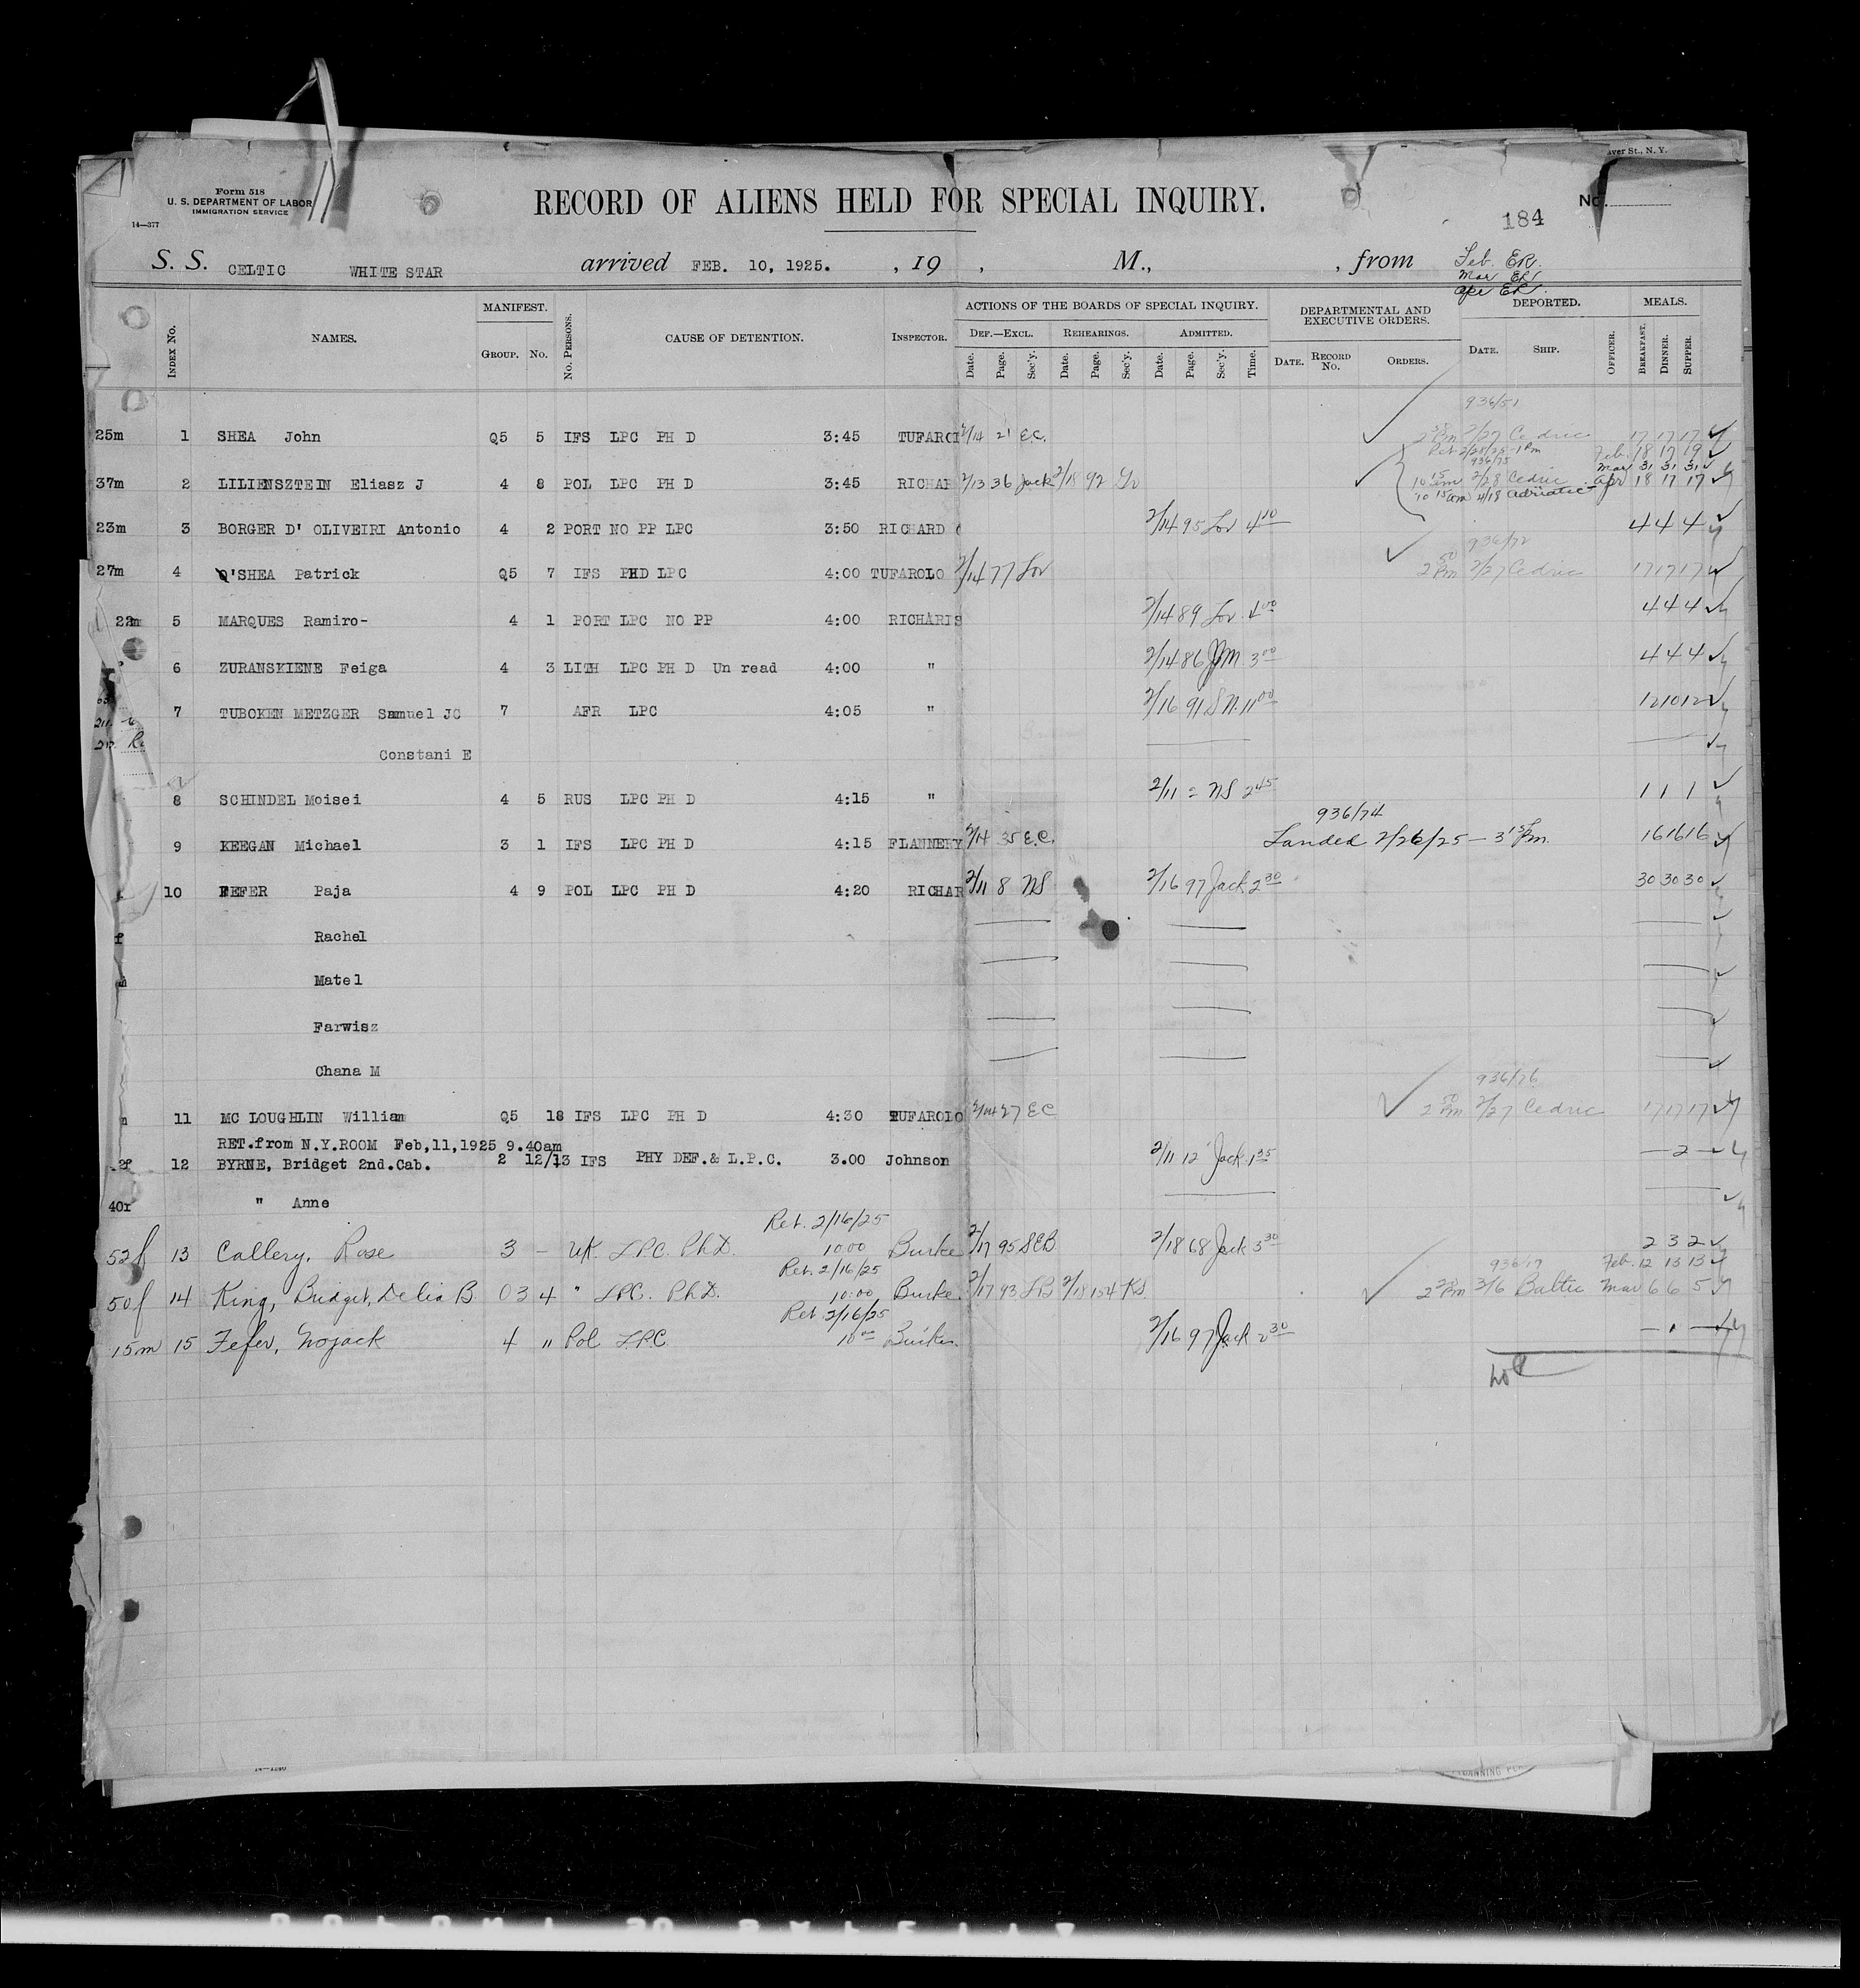 aver St., N. Y.
Form 518
U. S. DEPARTMENT OF LABOR
IMMIGRATION SERVICE
14—377
RECORD OF ALIENS HELD FOR SPECIAL INQUIRY.
No.
184
S. S. CELTIC WHITE STAR arrived FEB. 10, 1925. , 19 , M., , from
Feb. ER.
Mar ER
Apr ER.
INDEX No. NAMES. MANIFEST. GROUP. No. No. PERSONS. CAUSE OF DETENTION. INSPECTOR. ACTIONS OF THE BOARDS OF SPECIAL INQUIRY. DEPARTMENTAL AND EXECUTIVE ORDERS. DEPORTED. MEALS.
DEF.—EXCL. REHEARINGS. ADMITTED.
Date. Page. Sec'y. Date. Page. Sec'y. Date. Page. Sec'y. Time. DATE. RECORD No. ORDERS. DATE. SHIP. OFFICER. BREAKFAST. DINNER. SUPPER.
936/51
25m 1 SHEA John Q5 5 IFS LPC PH D 3:45 TUFAROI 2/14 21 E.C. 2/27 Cedric 17 17 17
Ret 2/28/25 - 1 Pm Feb. 18 17 19
936/75 Mar 31 31 31
37m 2 LILIENSZTEIN Eliasz J 4 8 POL LPC PH D 3:45 RICHAR 2/13 36 Jack 2/18 92 10 15 am 2/28 Cedric Apr 18 17 17
10 15 am 4/18 Adriatic
23m 3 BORGER D' OLIVEIRI Antonio 4 2 PORT NO PP LPC 3:50 RICHARD 2/14 95 Lov 4 10 4 4 4
936/72
27m 4 O'SHEA Patrick Q5 7 IFS PHD LPC 4:00 TUFAROLO 2/14 77 Lov 2 50 Pm 2/27 Cedric 17 17 17
22m 5 MARQUES Ramiro- 4 1 PORT LPC NO PP 4:00 RICHARIS 2/14 89 Lov 4 00 4 4 4
6 ZURANSKIENE Feiga 4 3 LITH LPC PH D Un read 4:00 " 2/14 86 JJM 3 00 4 4 4
7 TUBOKEN METZGER Samuel JC 7 AFR LPC 4:05 " 2/16 91 S N. 11 00 12 10 12
Constani E
8 SCHINDEL Moisei 4 5 RUS LPC PH D 4:15 " 2/11 2 NS 2 45 1 1 1
936/74
9 KEEGAN Michael 3 1 IFS LPC PH D 4:15 FLANNERY 2/14 35 E.C. Landed 2/26/25 — 3 15 Pm. 16 16 16
10 FEFER Paja 4 9 POL LPC PH D 4:20 RICHAR 2/11 8 NS 2/16 97 Jack 2 30 30 30 30
Rachel
Matel
Farwisz
Chana M
936/76
11 MC LOUGHLIN William Q5 18 IFS LPC PH D 4:30 TUFAROLO 2/14 27 EC 2 50 Pm 2/27 Cedric 17 17 17
RET.from N.Y.ROOM Feb,11,1925 9.40am
12 BYRNE, Bridget 2nd.Cab. 2 12/13 IFS PHY DEF.& L.P.C. 3.00 Johnson 2/11 12 Jack 1 35 — 2 —
" Anne
Ret. 2/16/25
52f 13 Callery, Rose 3 – UK. LPC. PhD. 10 00 Burke 2/17 95 SEB 2/18 68 Jack 3 30 2 3 2
Ret. 2/16/25 936/17 Feb. 12 13 13
50f 14 King, Bridget, Delia B. 03 4 " LPC. PhD. 10:00 Burke 2/17 93 LB 2/18 154 KS. 3/6 Baltic Mar 6 6 5
Ret 2/16/25
15m 15 Fefer, Nojack 4 " Pol LPC 10 00 Burke 2/16 97 Jack 2 30 — 1 —